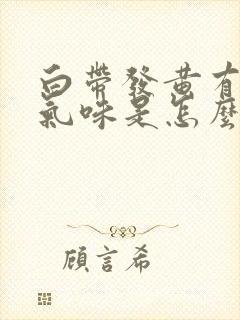 白帶發黃有
氣味是怎麼
顧言希